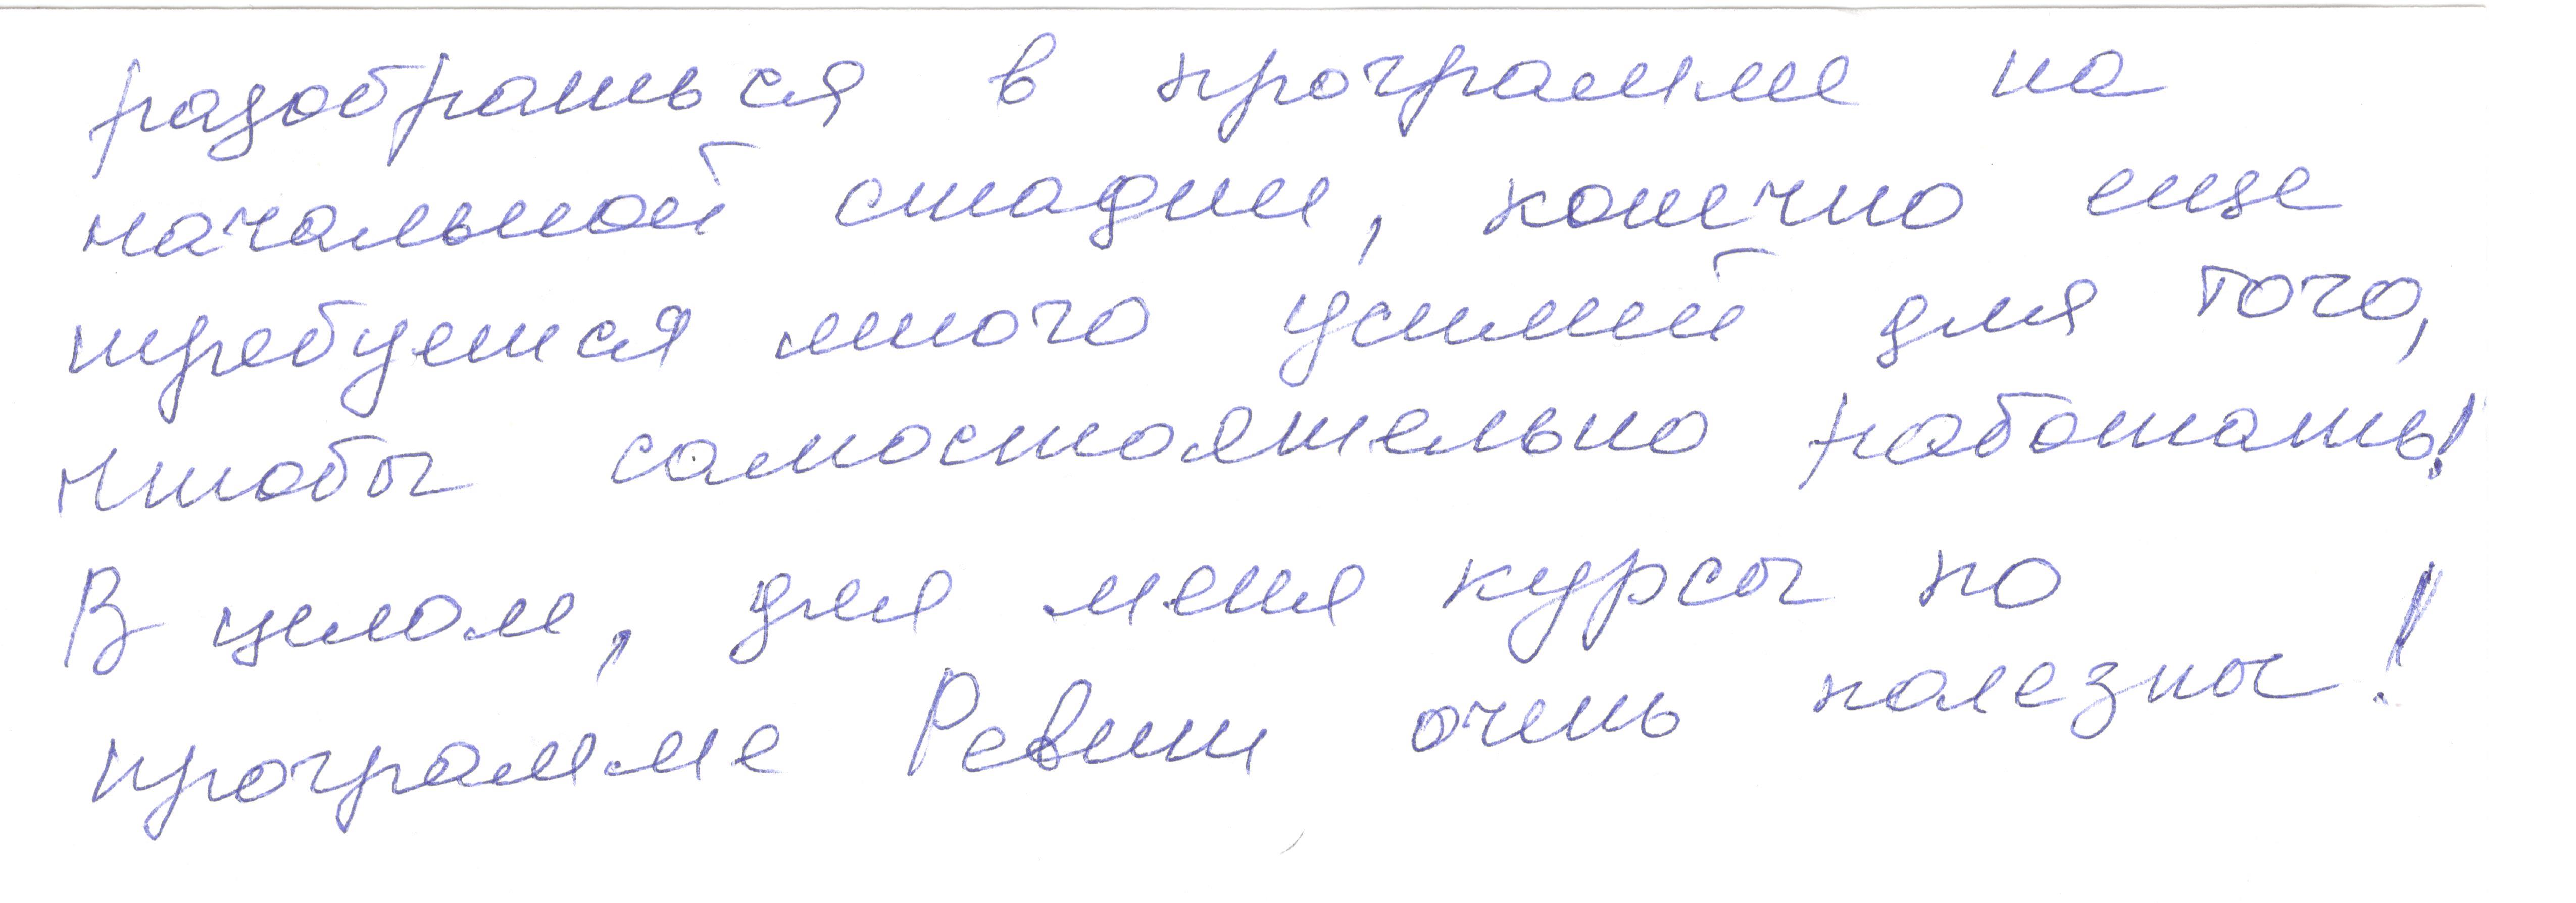 разобраться в программе на
начальной стадии, конечно еще
требуется много усилий для того,
чтобы самостоятельно работать!
В целом, для меня курсы по
программе Ревит очень полезны!